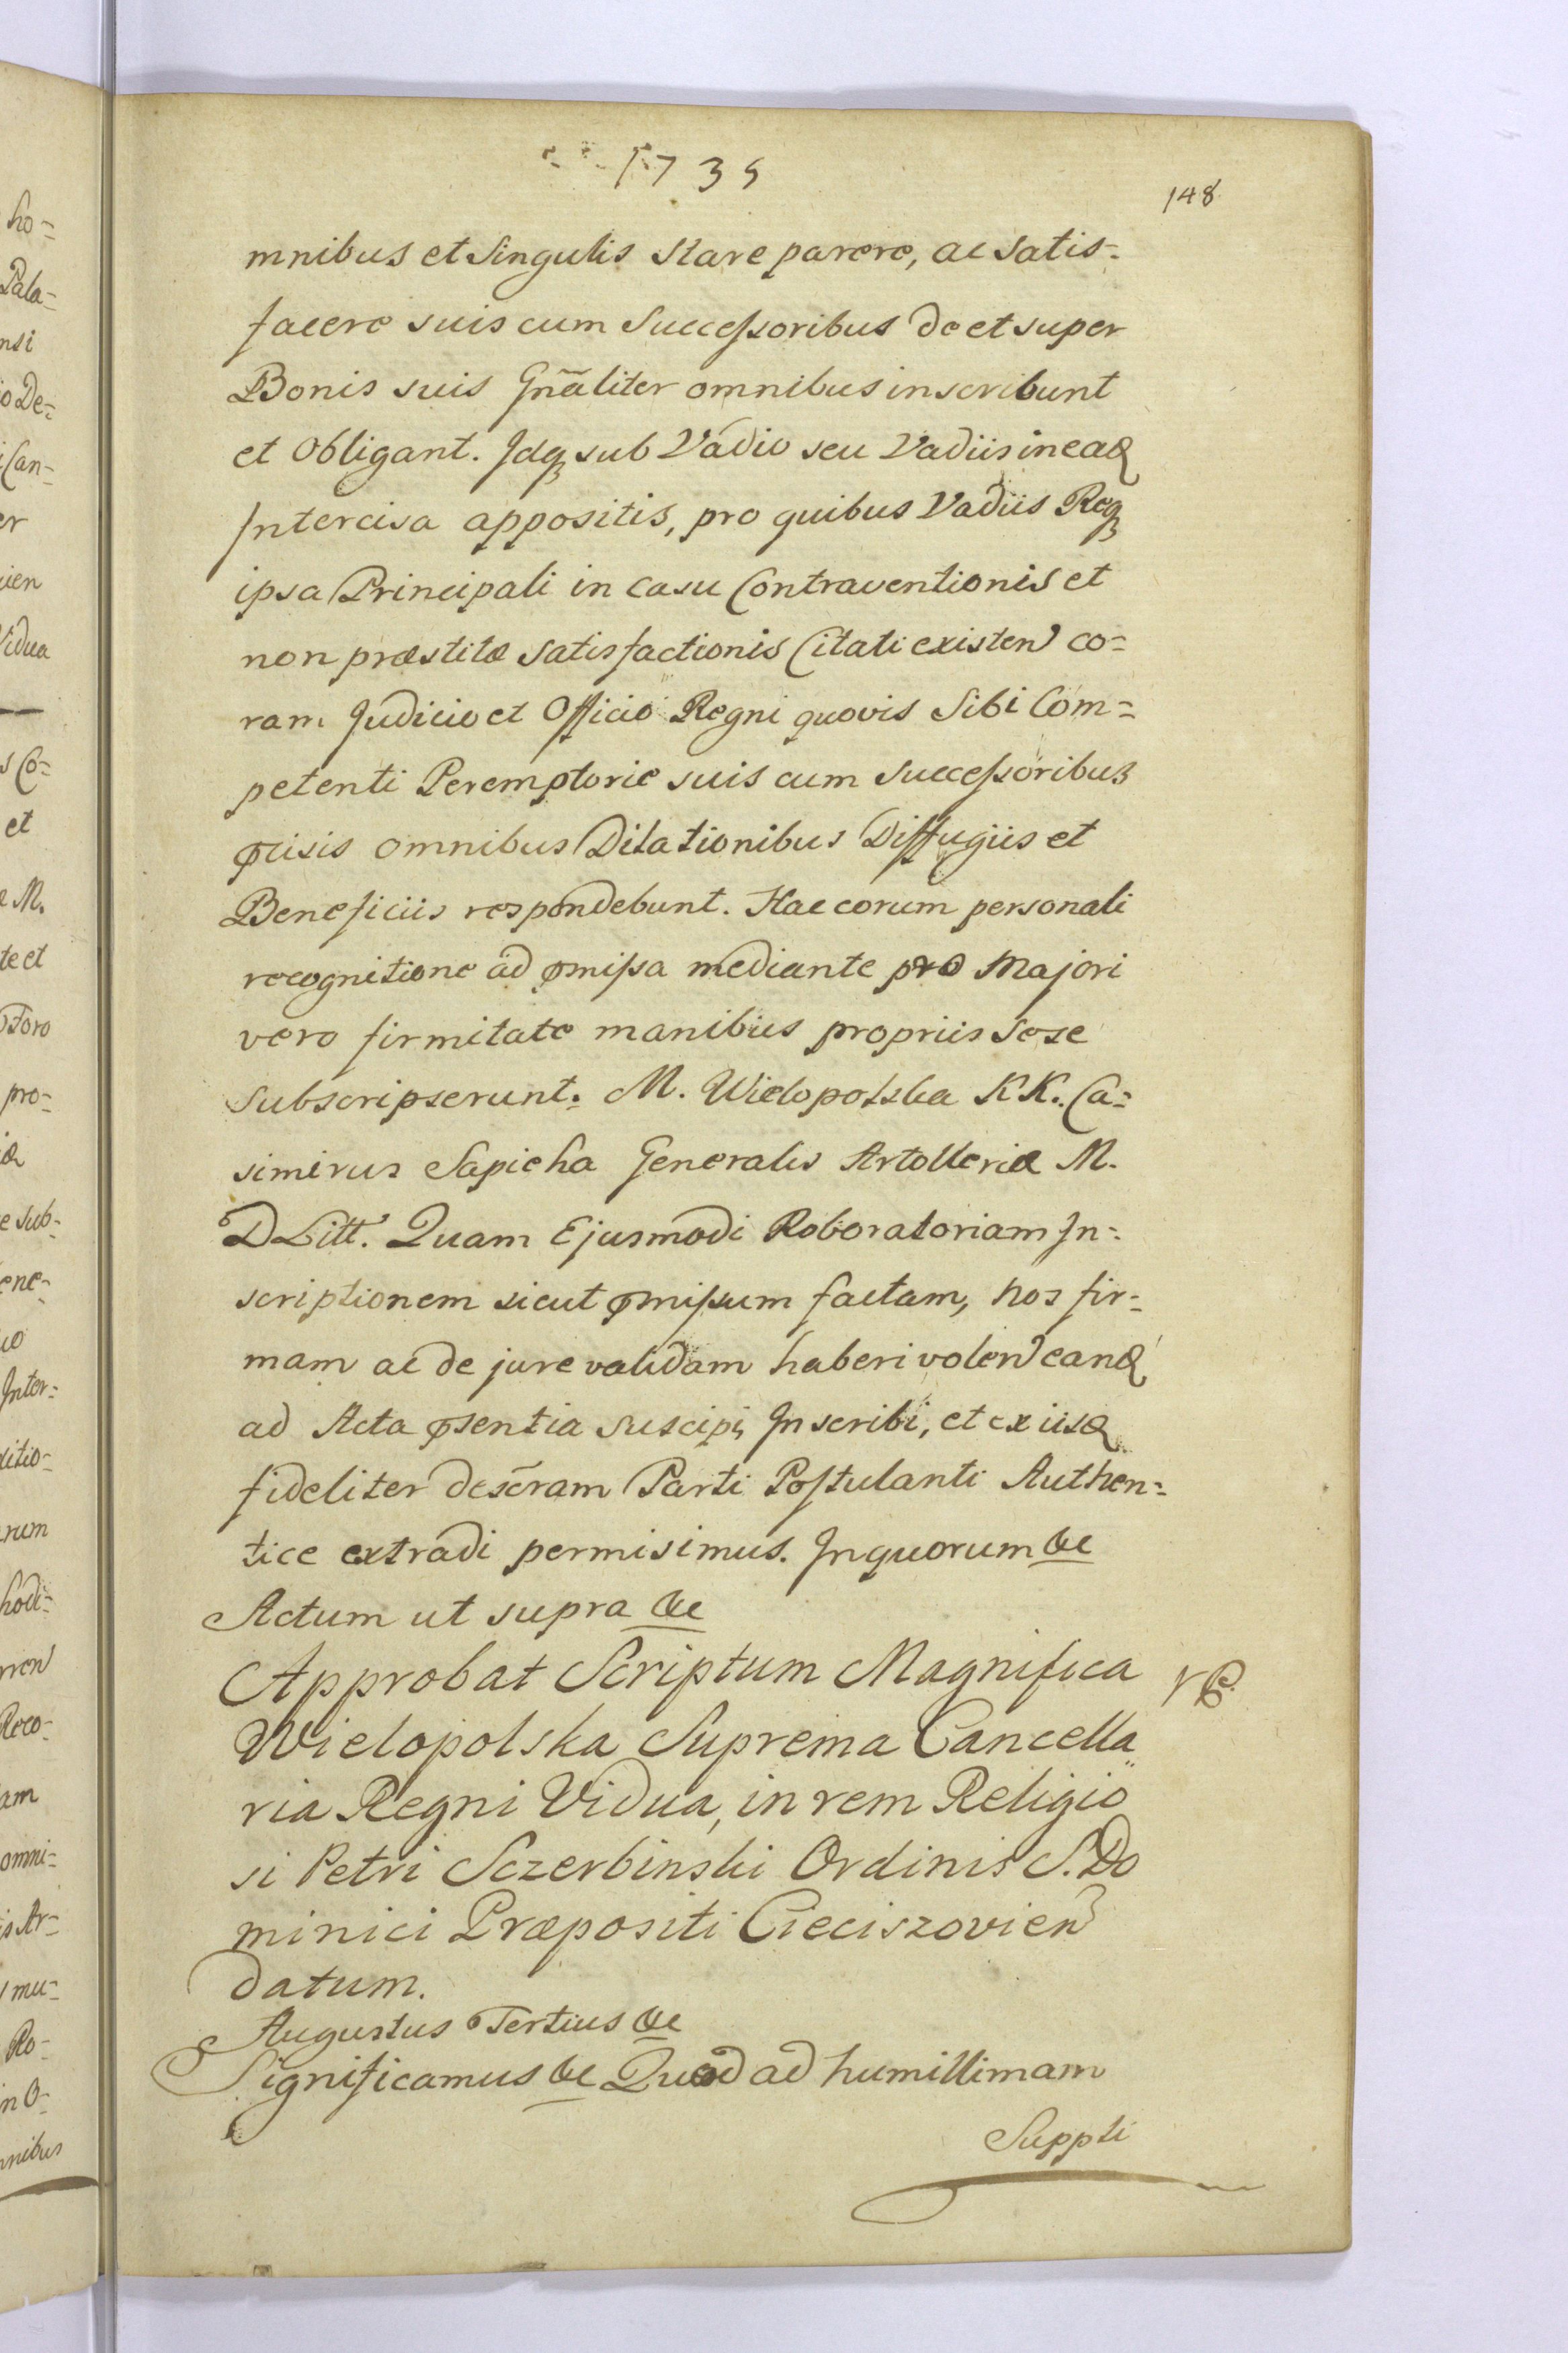 1735
148
mnibus et Singulis stare parere, ac satis=
facere suis cum Successoribus de et super
Bonis suis Gnãliter omnibus inscribunt
et obligant. Idq3 sub Vadio seu Vadiis in eadem
Intercisa appositis, pro quibus Vadiis Req3
ipsa Principali in casu Contraventionis et
non præstitæ satisfactionis Citati existen co=
ram Judicio et Officio Regni quovis Sibi Com=
petenti Peremptorie suis cum successoribus
præcisis omnibus Dilationibus Diffugiis et
Beneficiis respondebunt. Hac eorum personali
recognitione ad præmissa mediante pro Majori
vero firmitate manibus propriis sese
subscripserunt. M. Wielopolska KK. Ca=
simirus Sapieha Generalis Artolleriæ M.
D Litt. Quam Ejusmodi Roboratoriam In=
scriptionem sicut præmissum factam, nos fir=
mam ac de jure validam haberi volen eandem
ad Acta præsentia suscipi, Inscribi, et ex iisdem
fideliter descram Parti Postulanti Authen=
tice extradi permisimus. In quorum &c
Actum ut supra &c
Approbat Scriptum Magnifica
Wielopolska Suprema Cancella
ria Regni Vidua, in rem Religio
si Petri Sczerbinski Ordinis S. Do
minici Præpositi Cieciszovien
datum.
Augustus Tertius &c
Significamus &c Quod ad humillimam
Suppli